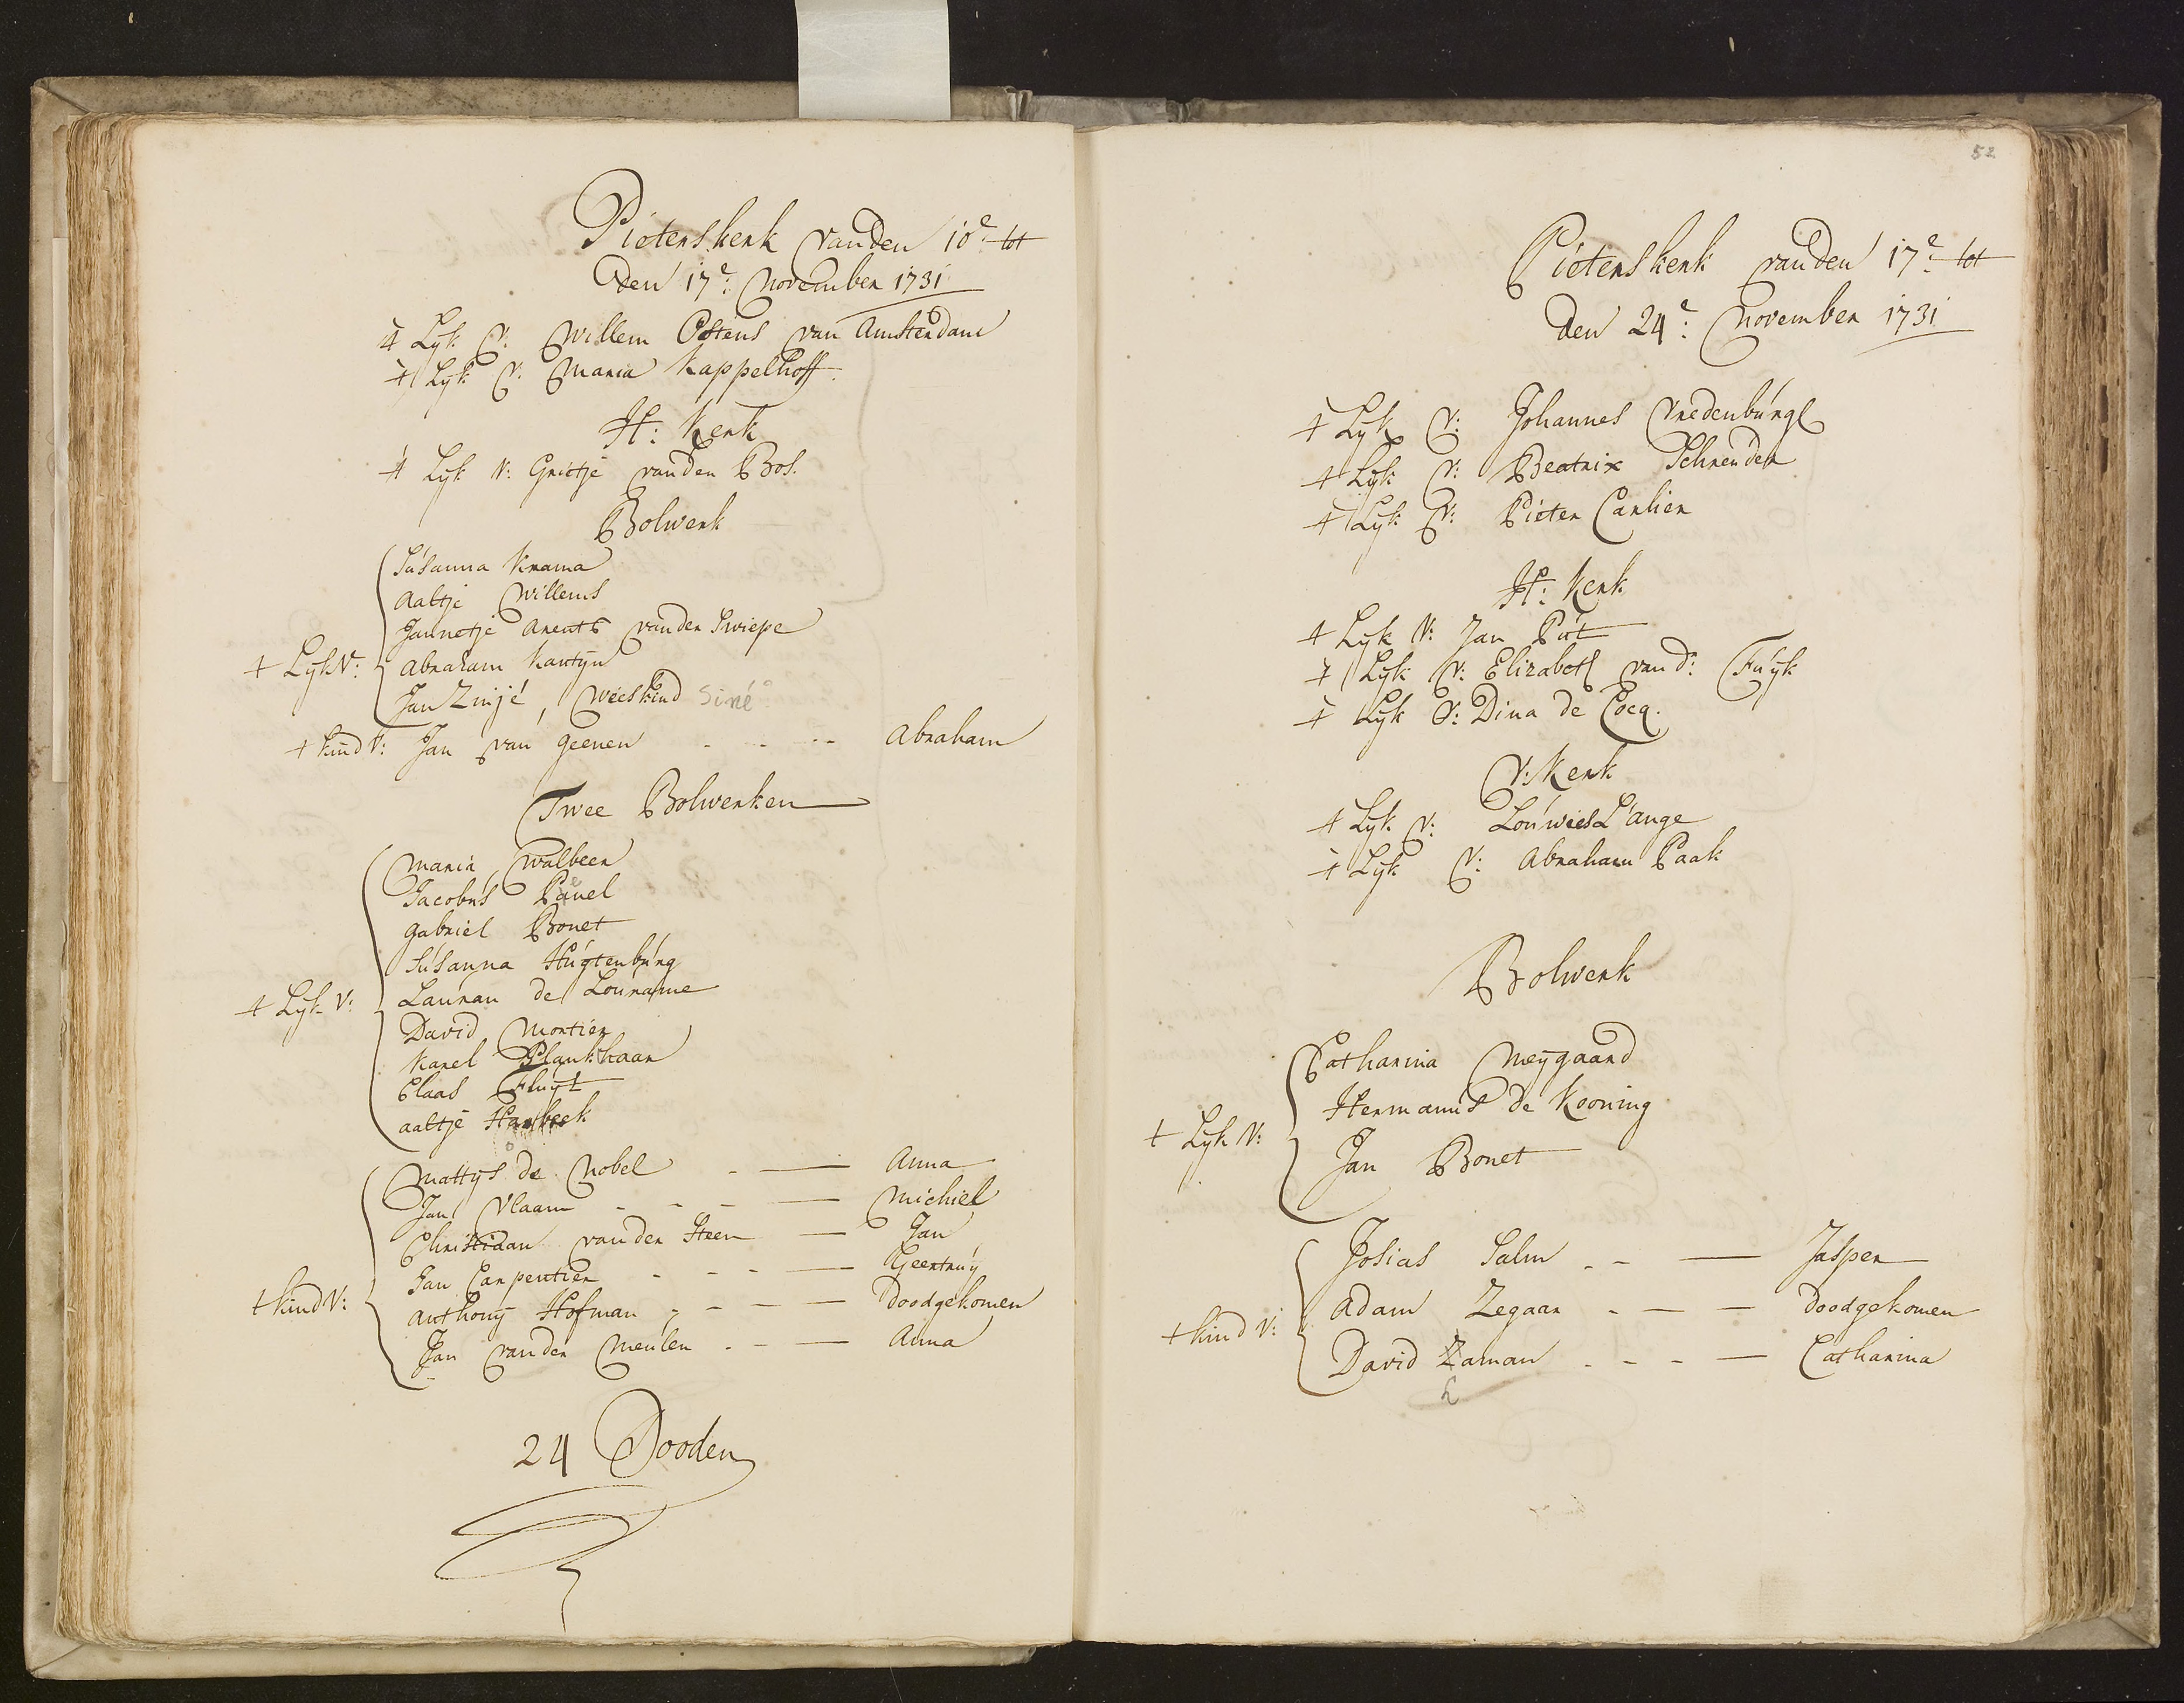 Pieterskerk vanden 10e tot
Den 17e: november 1731
† Lyk V: Willem Ostens van Amsterdam
† Lyk V: Maria Kappelhoff.
H: Kerk
† Lyk V: Grietje vanden Bos.
Bolwerk
Súsanna Krama
Aaltje Willems
Jannetje Arents vander Swiepe
† Lyk V: Abraham Kantyn
Jan Zinjé, Weeskind Siné
† kind V: Jan van Geenen - - - - Abraham
Twee Bolwerken
Maria Walbeer
Jacobús Pavel
Gabriel Bonet
Súsanna Húgtenbúrg
† Lyk V: Laurau de Lourame
David Mortier
Karel Plankhaar
Claas Flúyt
Aaltje
Mattys de Nobel - — Anna
Jan Vlaam - - - — Michiel
Christiaan vander Steen — Jan
Jan Carpentier - - - — Geertrúy
† kind V: Anthony Hofman - - - — Doodgekomen
Jan vander Meulen - - — Anna
24 Dooden
52
Pieterskerk vanden 17e tot
den 24e: november 1731
† Lyk V: Johannes Vredenbúrgh
† Lyk V: Beatrix Schreuder
† Lyk V: Pieter Carlier
H: Kerk
† Lyk V: Jan Pút
† Lyk V: Elizabeth van d: Fúyk
† Lyk V: Dina de Cocq.
V: Kerk
† Lyk V: Loúwies L'ange
† Lyk V: Abraham Paak
Bolwerk
Catharina Neygaard
Hermanus de Kooning
† Lyk V:
Jan Bonet
Josias Salm - - — Jasper
Adam Zegaar - — — Doodgekomen
† kind V:
David Zaman - - - — Catharina
L